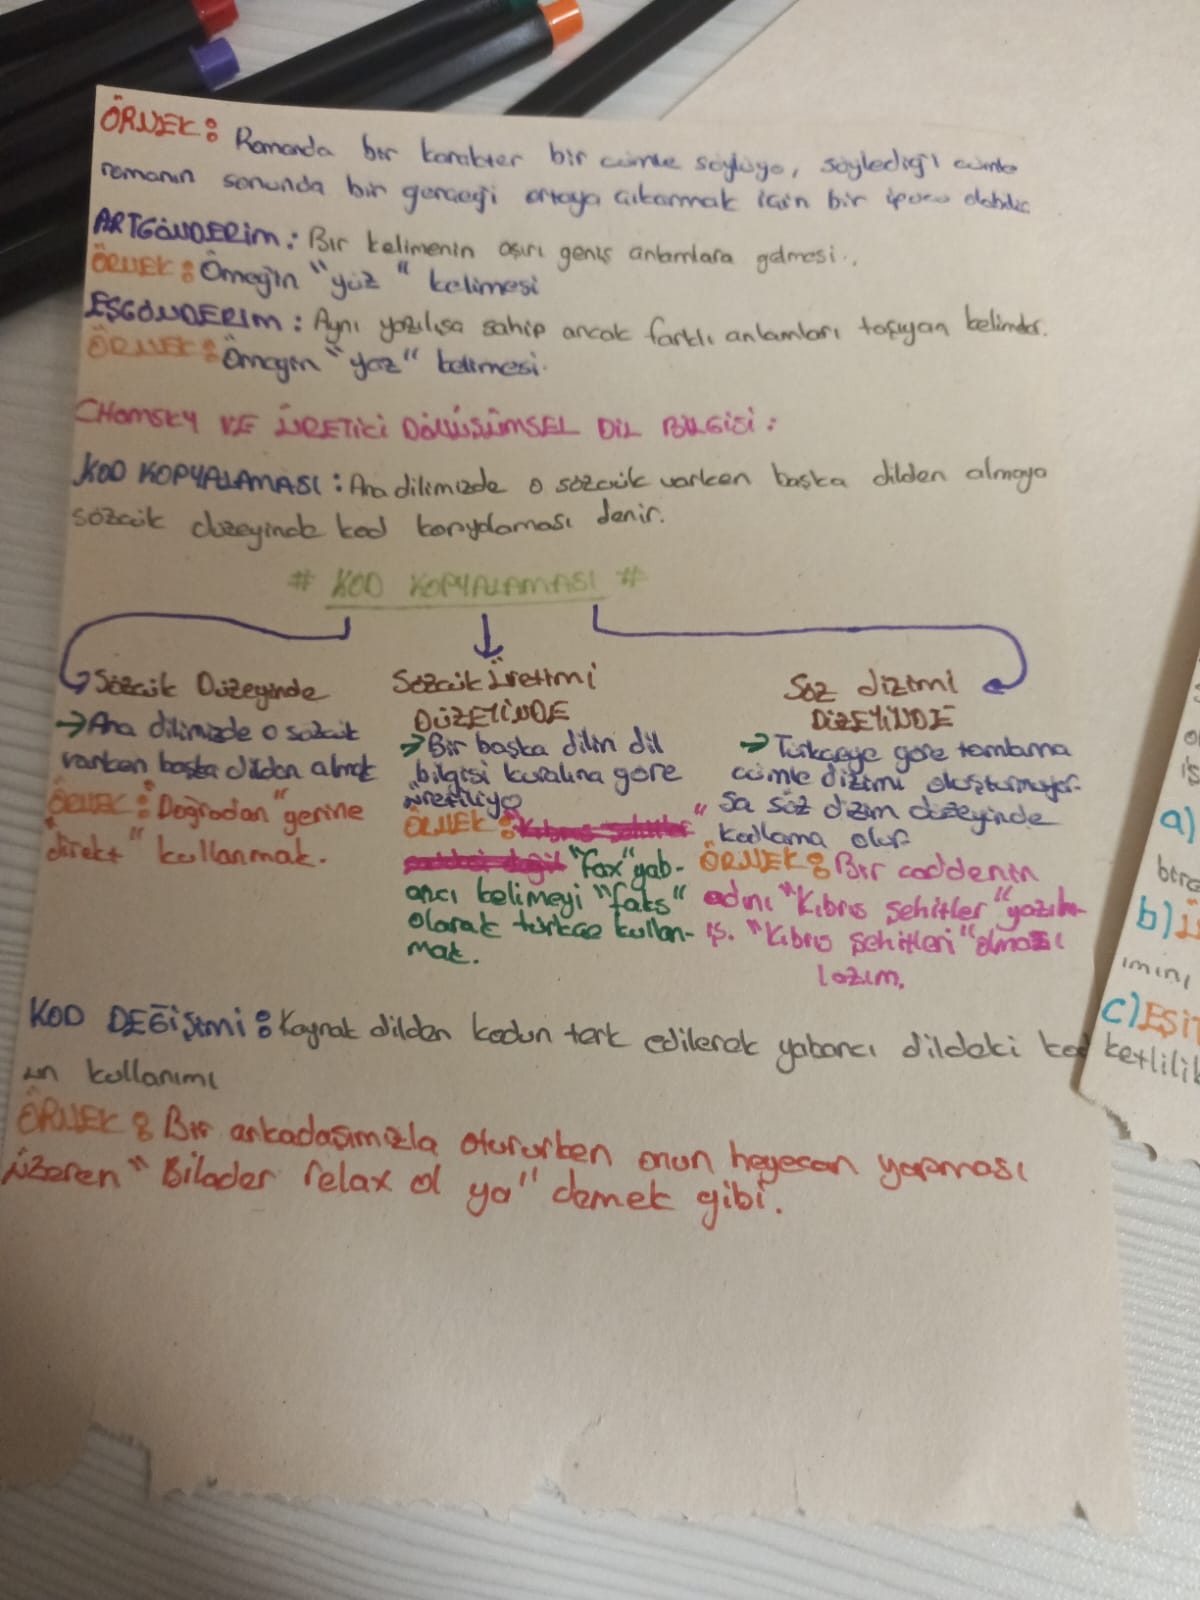 ÖRNEK: Romanda bir karakter bir cümle söylüyo, söylediği cümle
romanın sonunda bir gerçeği ortaya çıkarmak için bir ipucu olabilir.
ARTGÖNDERİM: Bir kelimenin aşırı geniş anlamlara gelmesi.
ÖRNEK: Örneğin "yüz" kelimesi
EŞGÖNDERIM: Aynı yazılışa sahip ancak farklı anlamları taşıyan kelimeler.
ÖRNEK: Örneğin "yaz" kelimesi.
CHOMSKY VE ÜRETİCİ DÖNÜŞÜMSEL DİL BİLGİSİ:
KOD KOPYALAMASI: Ana dilimizde o sözcük varken başka dilden almaya
sözcük düzeyinde kod kopyalaması denir.
# KOD KOPYALAMASI #
Sözcük Düzeyinde
→Ana dilimizde o sözcük
varken başka dilden almak
ÖRNEK: "Doğrudan" yerine
"direkt" kullanmak.
Sözcük Üretimi
DÜZEYİNDE
→Bir başka dilin dil
bilgisi kuralına göre
üretiliyo
ÖRNEK:
"Fax" yab-
ancı kelimeyi "faks"
olarak türkçe kullan-
mak.
Söz dizimi
DÜZEYİNDE
→Türkçeye göre tamlama
cümle dizimi oluşturmuyor-
sa söz dizim düzeyinde
kodlama olur
ÖRNEK: Bir caddenin
adını "Kıbrıs Şehitler" yazılm-
ış. "Kıbrıs Şehitleri" olması
lazım.
KOD DEĞİŞİMİ: Kaynak dilden kodun terk edilerek yabancı dildeki kod
un kullanımı
ÖRNEK: Bir arkadaşımızla otururken onun heyecan yapması
üzeren "Bilader relax ol ya" demek gibi.
a)
b)
ımını
c) EŞİT